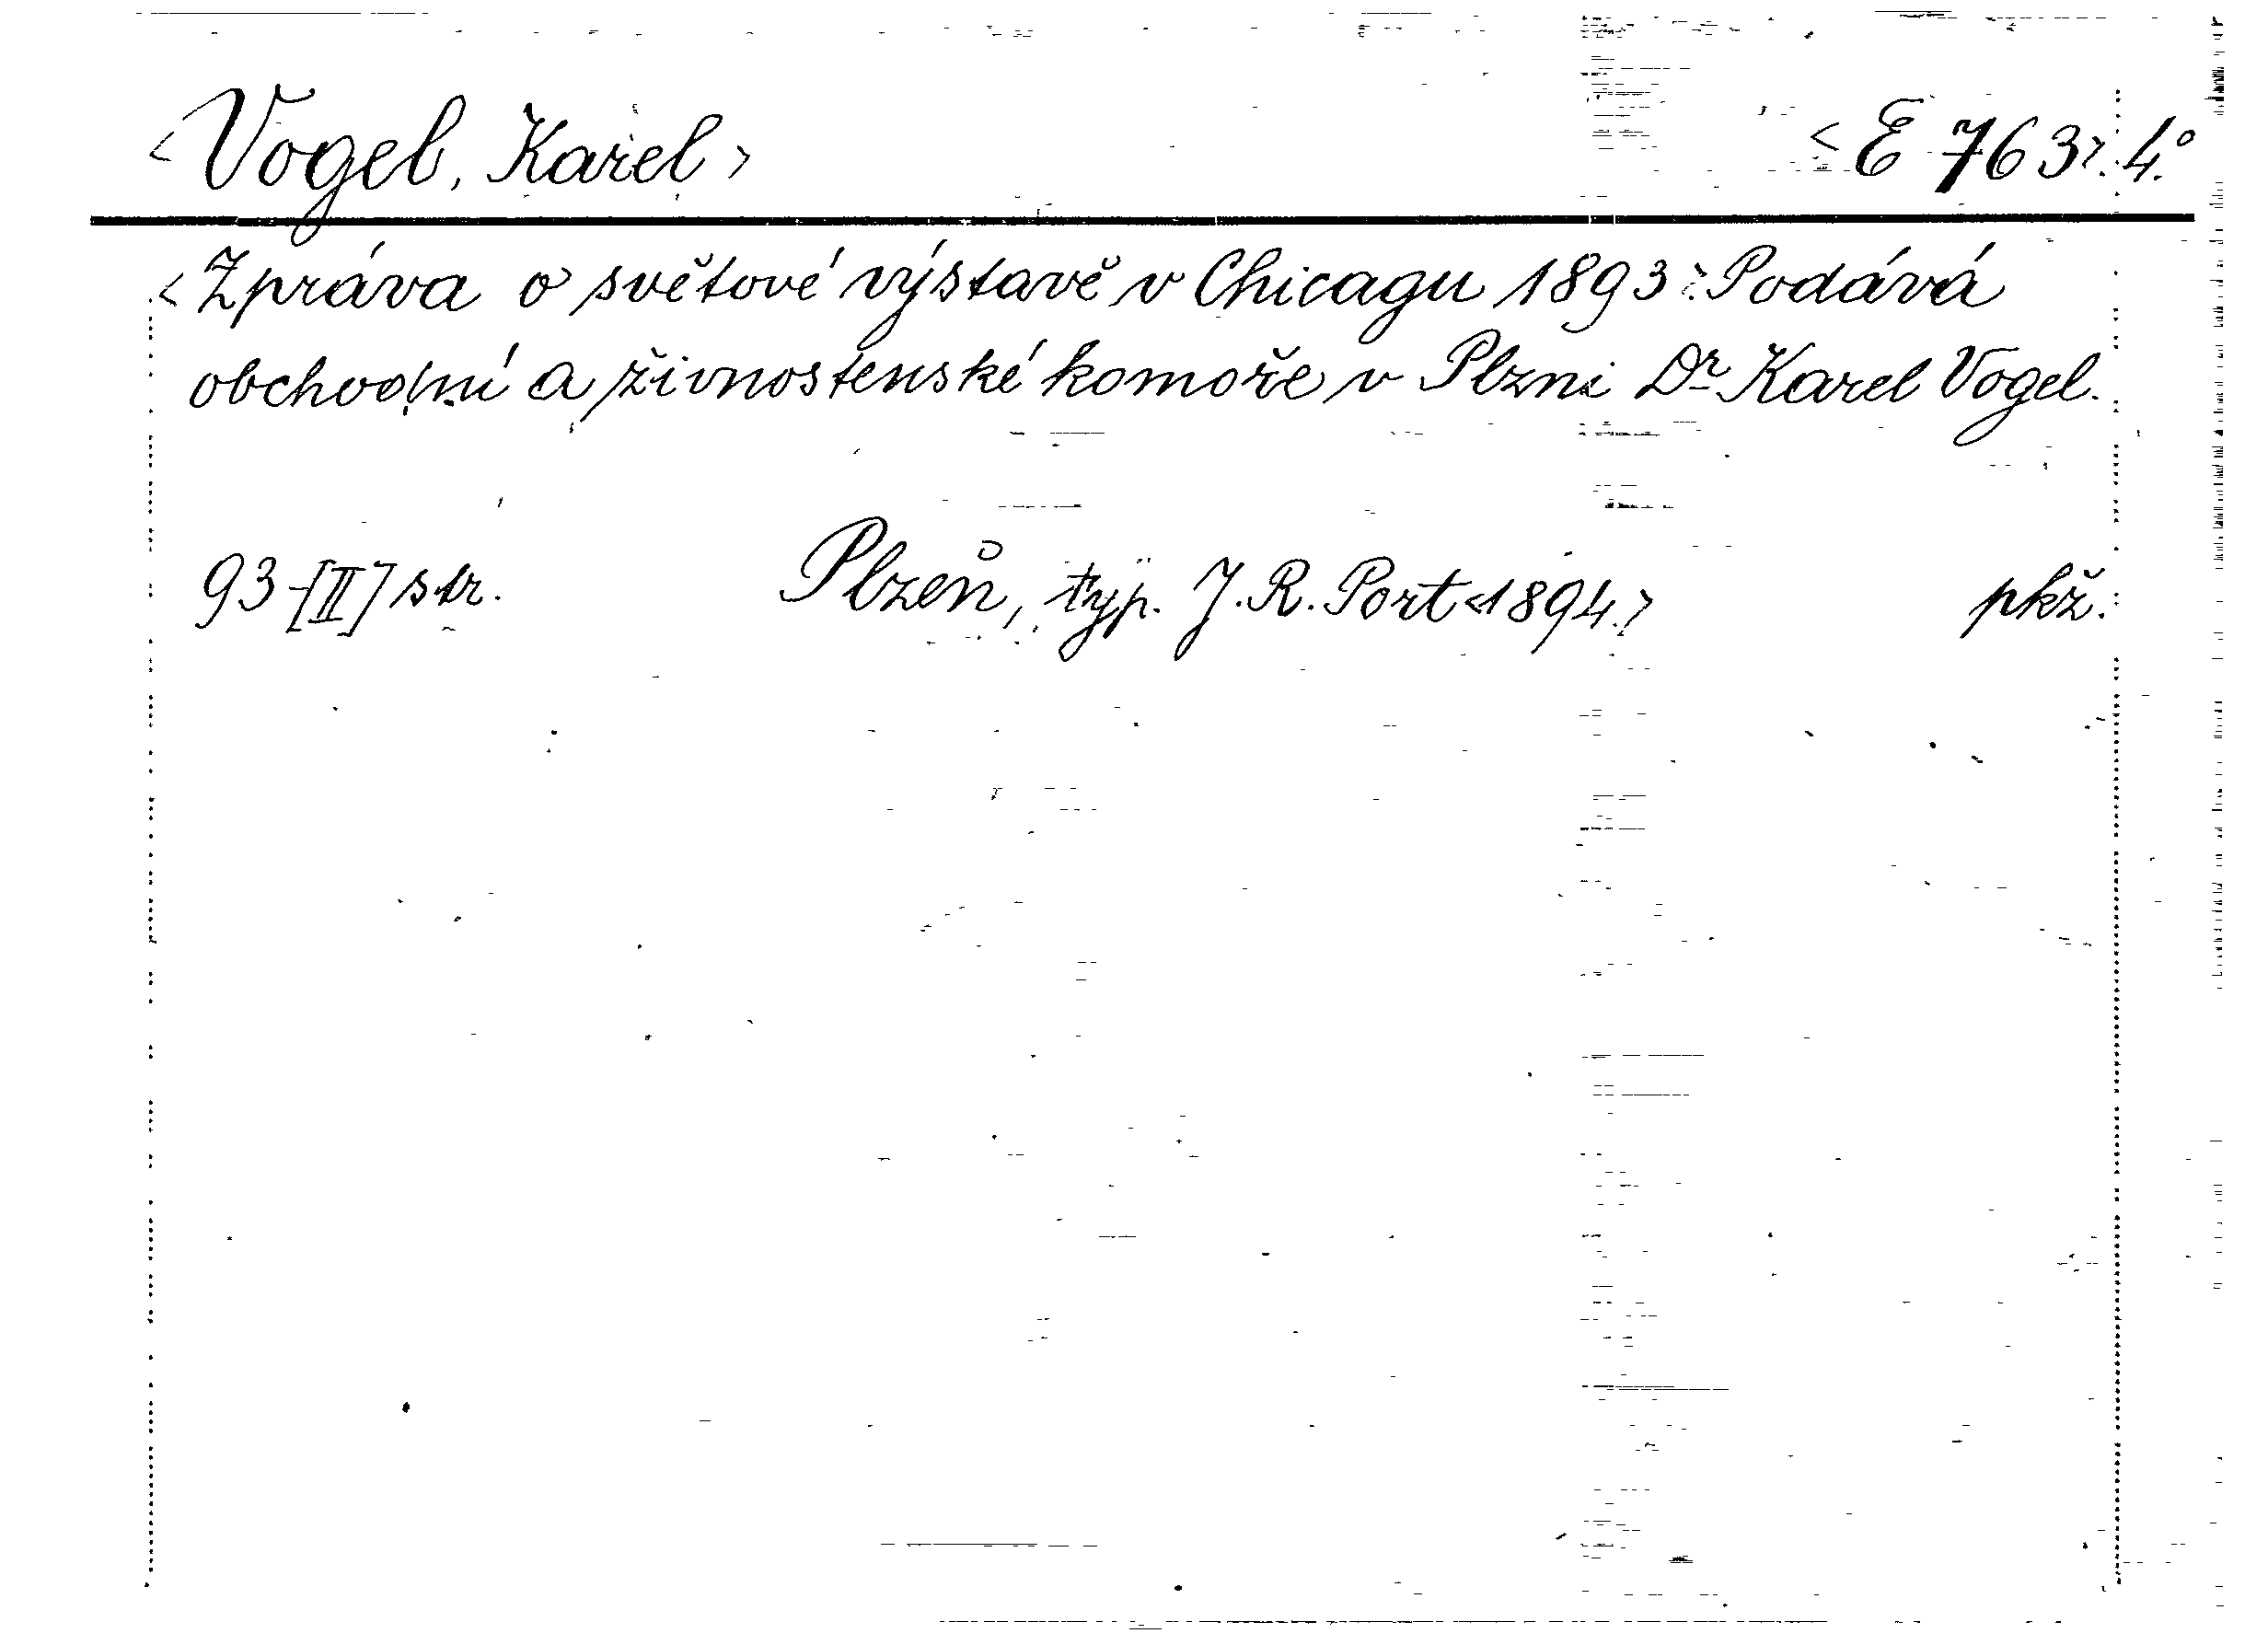 <Vogel, Karel> <E 763>. 4.°
<Zpráva o světové výstavě v Chicagu 1893>. Podává
obchodní a živnostenské komoře v Plzni Dr Karel Vogel.
93-[II] str. Plzeň, typ. J. R. Port <1894.> pkž.